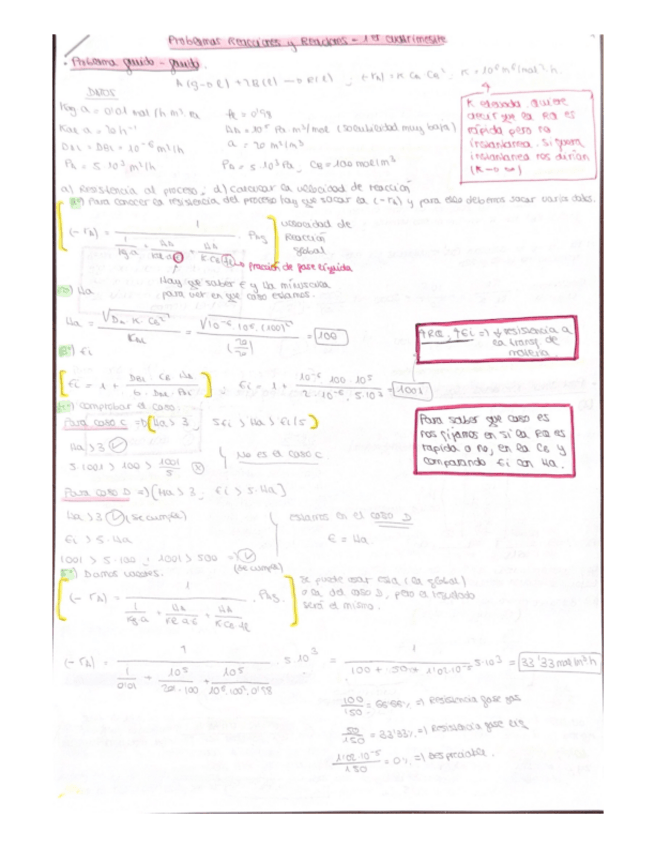 Problemas Reacciones y Reactores - 1er cuatrimestre
• Problema fluido - fluido.
A (g→l) + 2B(l) → R(l) ; (-rA) = K CA CB² ; K = 10⁶ m⁶/mol² h.
DATOS
KAg a = 0'01 mol/h m³ Pa fl = 0'98
KAL a = 20 h⁻¹ HA = 10⁵ Pa m³/mol (solubilidad muy baja)
DAL = DBL = 10⁻⁶ m²/h a = 20 m²/m³
PA = 5·10³ Pa, CB = 100 mol/m³
K elevada quiere
decir que la RQ es
rápida pero no
instantánea. Si fuera
instantánea nos dirían
(K → ∞)
a) Resistencia al proceso; d) calcular la velocidad de reacción
Para conocer la resistencia del proceso hay que sacar la (-rA) y para ello debemos sacar varios datos.
(-rA) = 1 / (1/kg a + HA/KAL a E + HA/K CB² fl) · PAg
velocidad de
Reacción
global.
fracción de fase líquida
Hay que saber E y Ha minúscula
para ver en que caso estamos.
Ha
Ha = √(DA · K · CB²) / KAL = √(10⁻⁶ · 10⁶ · (100)²) / (20/20) = 100
↑RQ, ↑Ei ⇒ ↓ resistencia a
la transf. de
materia.
Ei
Ei = 1 + DBL · CB · HA / b · DAL · PAi ; Ei = 1 + 10⁻⁶ · 100 · 10⁵ / 2 · 10⁻⁶ · 5·10³ = 1001
comprobar el caso
Para caso C ⇒ Ha > 3 ; 5Ei > Ha > Ei/5
Ha > 3 ✓
5·1001 > 100 > 1001/5 ⓧ No es el caso C
Para saber que caso es
nos fijamos en si la RQ es
rápida o no, en la CB y
comparando Ei con Ha.
Para caso D ⇒ (Ha > 3 ; Ei > 5·Ha)
Ha > 3 ✓ (se cumple) estamos en el caso D
Ei > 5·Ha E = Ha
1001 > 5·100 ; 1001 > 500 ⇒ ✓ (se cumple)
Damos valores.
(-rA) = 1 / (1/kg a + HA/KAL a E + HA/K CB² fl) · PAg
Se puede usar esta (la global)
o la del caso D, pero el resultado
será el mismo.
(-rA) = 1 / (1/0'01 + 10⁵/20·100 + 10⁵/10⁶·100²·0'98) · 5·10³ = 1 / (100 + 50 + 1'02·10⁻⁵) · 5·10³ = 33'33 mol/m³h
100/150 = 66'66% ⇒ Resistencia fase gas
50/150 = 33'33% ⇒ Resistencia fase liq
1'02·10⁻⁵/150 = 0% ⇒ Despreciable.